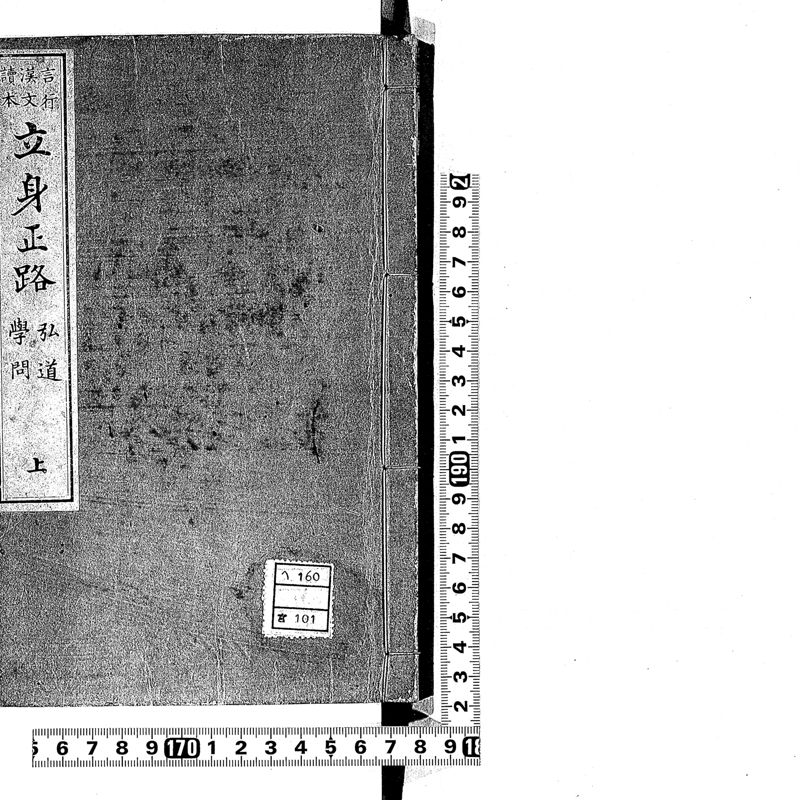 言行
漢文
讀本
立身正路
弘道
學問
上
160
101
2
9
8
7
6
5
4
3
2
1
190
9
8
7
6
5
4
3
2
6 7 8 9 170 1 2 3 4 5 6 7 8 9 18